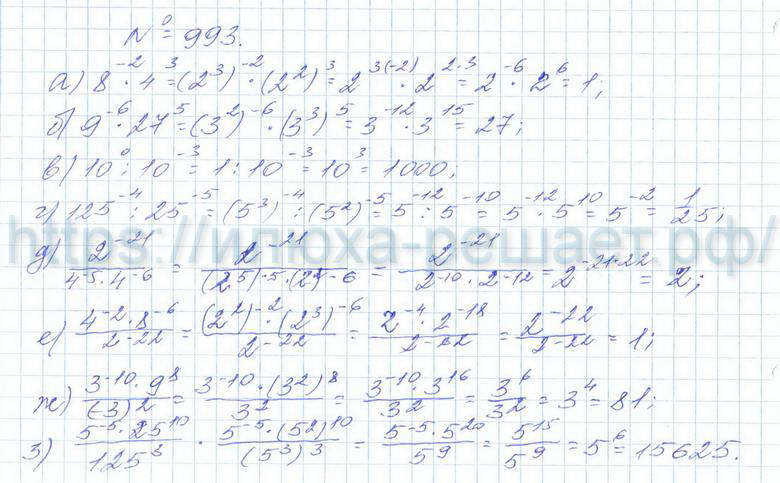 № 993.
а) 8⁻² · 4³ = (2³)⁻² · (2²)³ = 2³⁽⁻²⁾ · 2²·³ = 2⁻⁶ · 2⁶ = 1;
б) 9⁻⁶ · 27⁵ = (3²)⁻⁶ · (3³)⁵ = 3⁻¹² · 3¹⁵ = 27;
в) 10⁰ : 10⁻³ = 1 : 10⁻³ = 10³ = 1000;
г) 125⁻⁴ : 25⁻⁵ = (5³)⁻⁴ : (5²)⁻⁵ = 5⁻¹² : 5⁻¹⁰ = 5⁻¹² · 5¹⁰ = 5⁻² = 1/25;
https://илюха-решает.рф/
д) 2⁻²¹/(4⁻⁵ · 4⁻⁶) = 2⁻²¹/((2²)⁻⁵ · (2²)⁻⁶) = 2⁻²¹/(2⁻¹⁰ · 2⁻¹²) = 2⁻²¹⁺²² = 2;
е) (4⁻² · 8⁻⁶)/2⁻²² = ((2²)⁻² · (2³)⁻⁶)/2⁻²² = (2⁻⁴ · 2⁻¹⁸)/2⁻²² = 2⁻²²/2⁻²² = 1;
ж) (3⁻¹⁰ · 9⁸)/(-3)² = (3⁻¹⁰ · (3²)⁸)/3² = (3⁻¹⁰ · 3¹⁶)/3² = 3⁶/3² = 3⁴ = 81;
з) (5⁻⁵ · 25¹⁰)/125³ · (5⁻⁵ · (5²)¹⁰)/(5³)³ = (5⁻⁵ · 5²⁰)/5⁹ = 5¹⁵/5⁹ = 5⁶ = 15625.